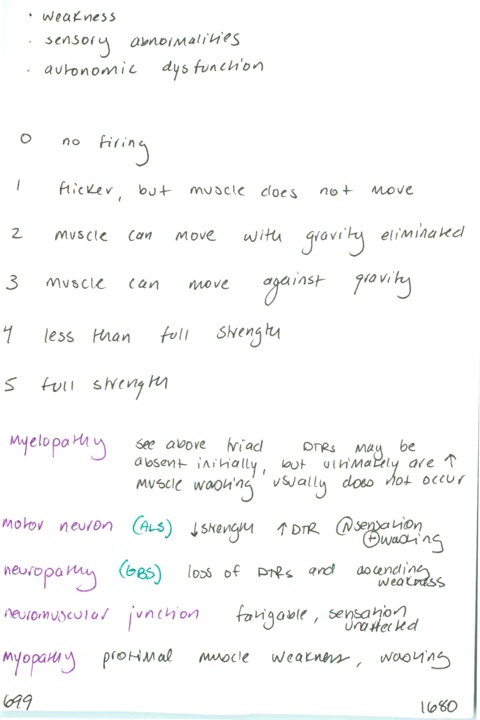 · weakness
· sensory abnormalities
· autonomic dysfunction
0 no firing
1 flicker, but muscle does not move
2 muscle can move with gravity eliminated
3 muscle can move against gravity
4 less than full strength
5 full strength
myelopathy see above triad DTRs may be
absent initially, but ultimately are ↑
muscle wasting usually does not occur
motor neuron (ALS) ↓strength ↑DTR Ⓝsensation
⊕wasting
neuropathy (GBS) loss of DTRs and ascending
weakness
neuromuscular junction fatigable, sensation
unaffected
myopathy proximal muscle weakness, wasting
699 1680